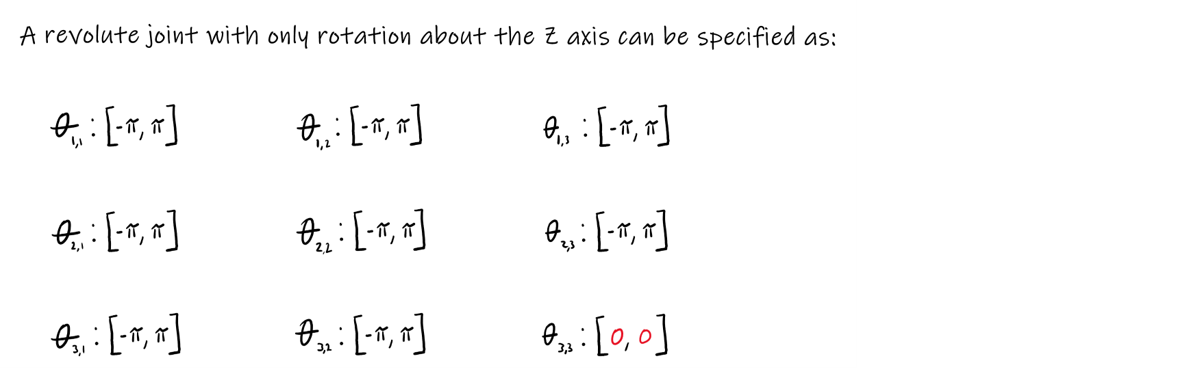 A revolute joint with only rotation about the Z axis can be specified as:
θ₁,₁ : [-π, π] θ₁,₂ : [-π, π] θ₁,₃ : [-π, π]
θ₂,₁ : [-π, π] θ₂,₂ : [-π, π] θ₂,₃ : [-π, π]
θ₃,₁ : [-π, π] θ₃,₂ : [-π, π] θ₃,₃ : [0, 0]